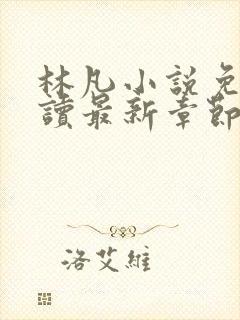 林凡小說免
讀最新章節
洛艾維